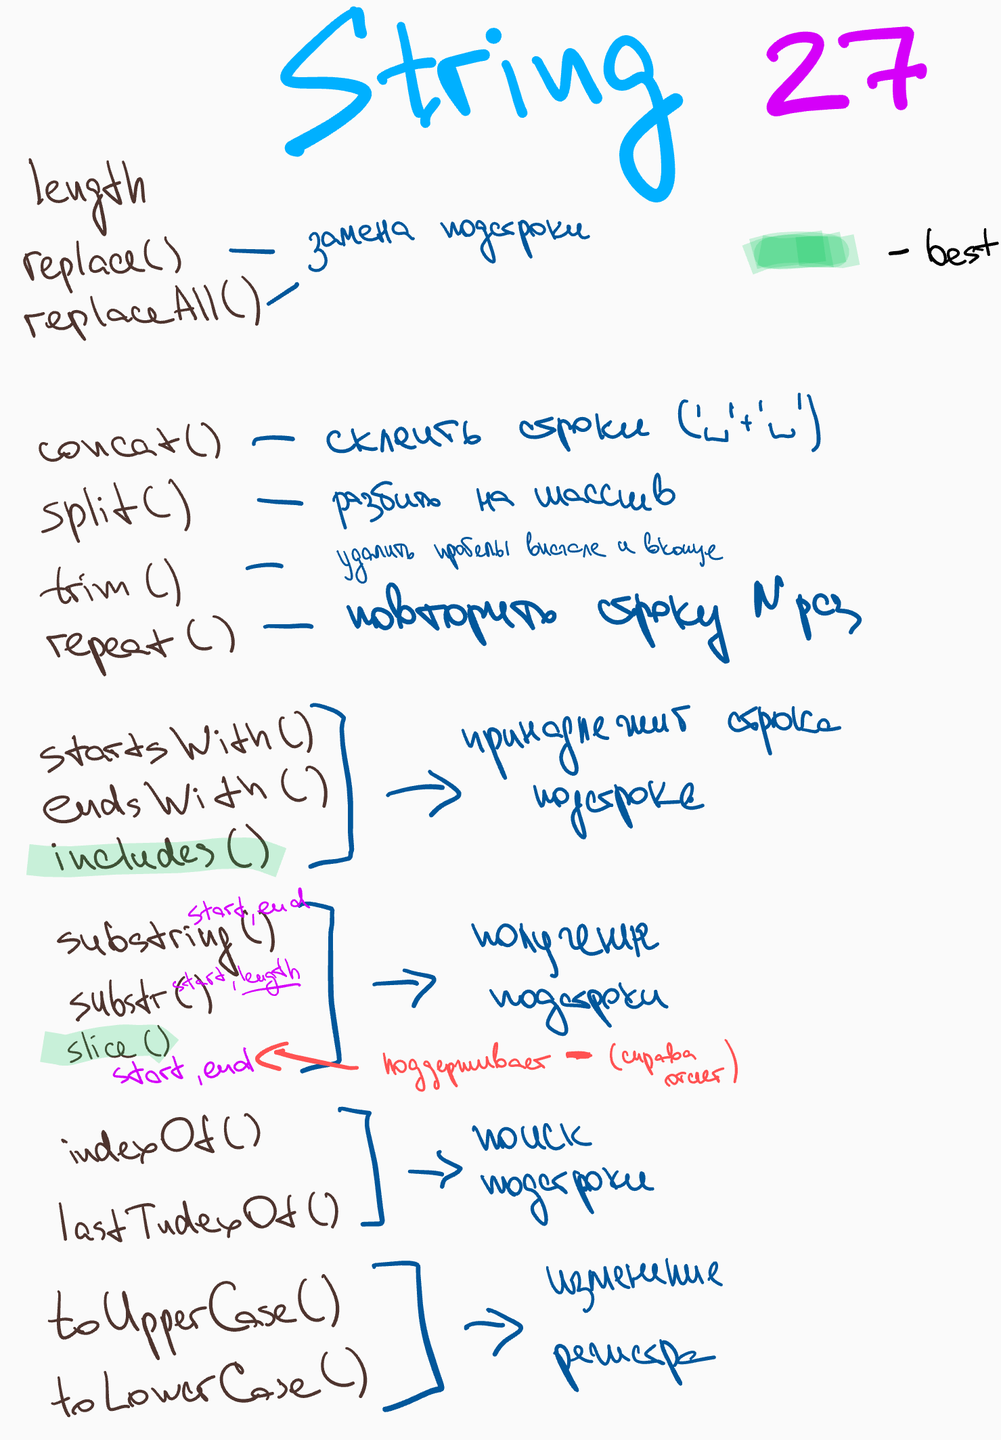 String 27
length
replace() — замена подстроки
replaceAll()
— best
concat() — склеить строки ('␣'+'␣')
split() — разбить на массив
trim() — удалить пробелы вначале и вконце
repeat() — повторить строку N раз
startsWith()
endsWith()
includes()
→ принадлежит строка
подстроке
substring() start, end
substr() start, length
slice()
start, end
→ получение
подстроки
поддерживает — (справа
отсчет)
indexOf()
lastIndexOf()
→ поиск
подстроки
toUpperCase()
toLowerCase()
→ изменение
регистра